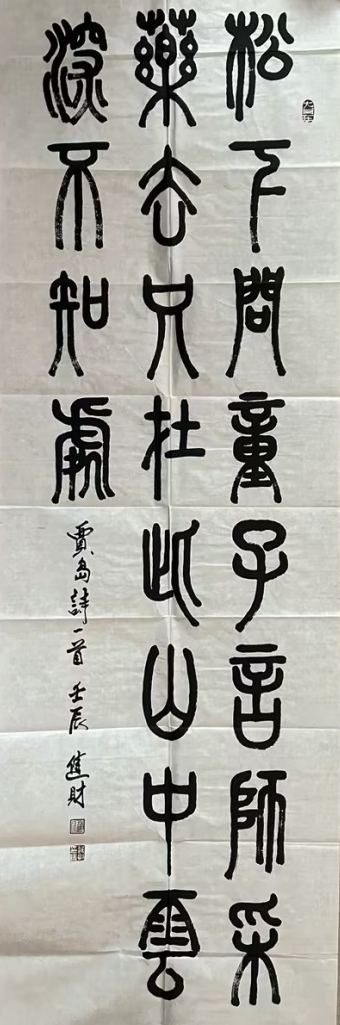 松下問童子言師采
藥去只在此山中雲
深不知處
賈島詩一首 壬辰 進財